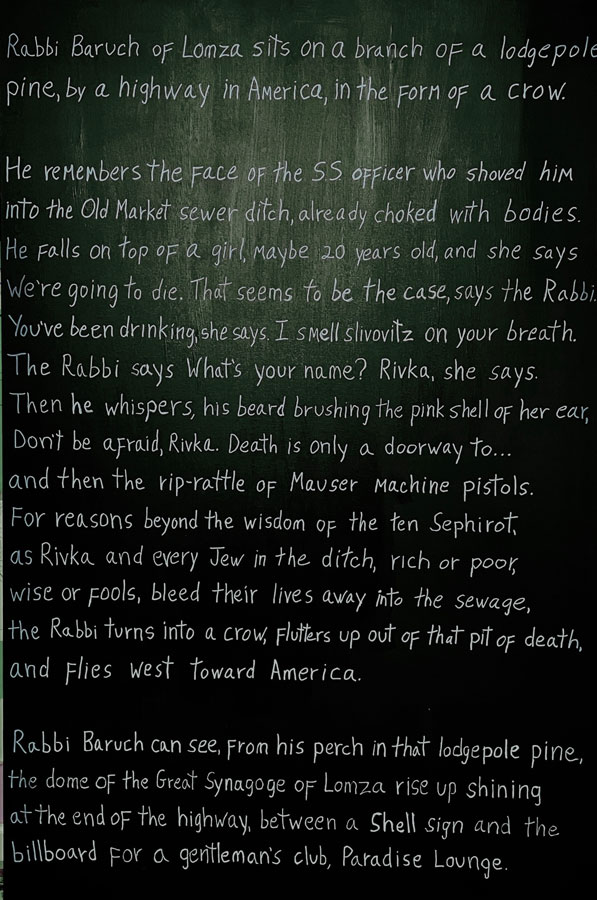 Rabbi Baruch of Lomza sits on a branch of a lodgepole
pine, by a highway in America, in the form of a crow.
He remembers the face of the S.S. officer who shoved him
into the Old Market sewer ditch, already choked with bodies.
He falls on top of a girl, maybe 20 years old, and she says
We're going to die. That seems to be the case, says the Rabbi.
You've been drinking, she says. I smell slivovitz on your breath.
The Rabbi says What's your name? Rivka, she says.
Then he whispers, his beard brushing the pink shell of her ear,
Don't be afraid, Rivka. Death is only a doorway to...
and then the rip-rattle of Mauser machine pistols.
For reasons beyond the wisdom of the ten Sephirot,
as Rivka and every Jew in the ditch, rich or poor,
wise or fools, bleed their lives away into the sewage,
the Rabbi turns into a crow, flutters up out of that pit of death,
and flies west toward America.
Rabbi Baruch can see, from his perch in that lodgepole pine,
the dome of the Great Synagoge of Lomza rise up shining
at the end of the highway, between a Shell sign and the
billboard for a gentleman's club, Paradise Lounge.